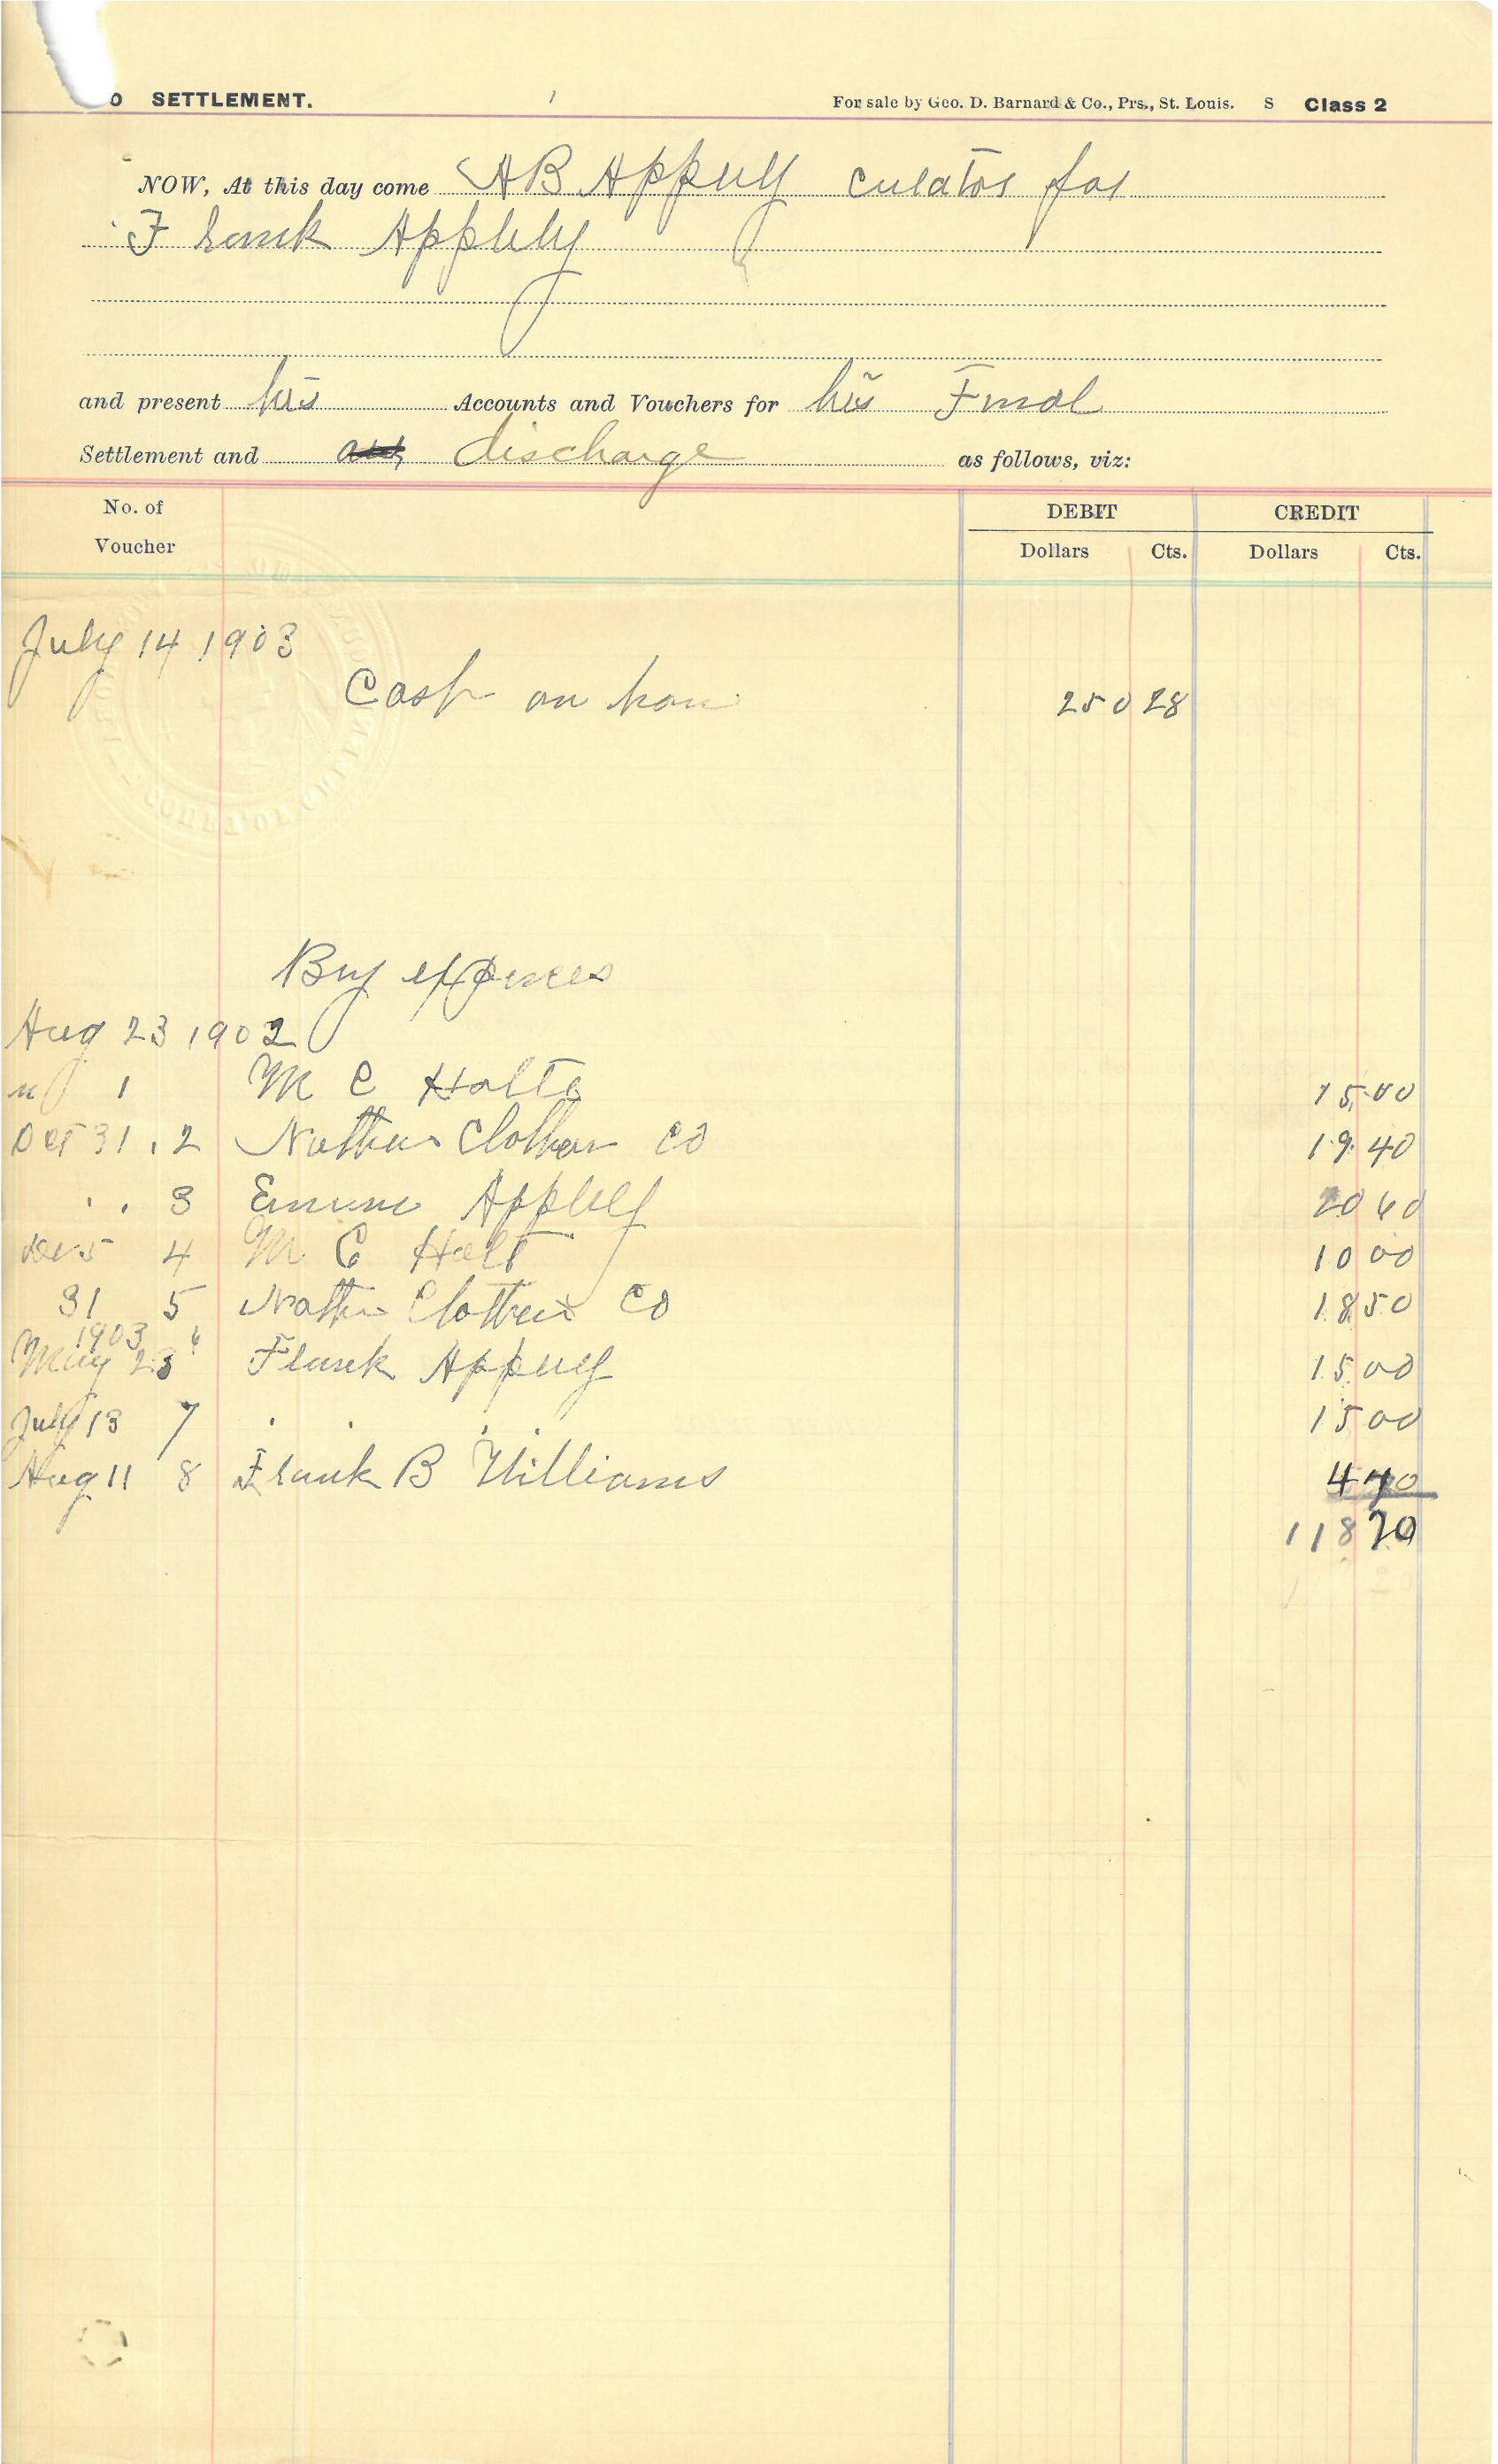 O SETTLEMENT. For sale by Geo. D. Barnard & Co., Prs., St. Louis. S Class 2
NOW, At this day come AB Appley curator for
Frank Appleby
and present his Accounts and Vouchers for his Final
Settlement and discharge as follows, viz:
No. of Voucher DEBIT CREDIT
Dollars Cts. Dollars Cts.
July 14 1903
Cash on han 250 28
By expences
Aug 23 1902
1 M C Holt 15.00
Oct 31 . 2 Clothen Co 19 40
. . 3 Appley 20 60
Dec 5 4 M C Holt 10 00
31 5 Co 18 50
1903
May 23 6 Frank Appley 15 00
July 13 7 . . . 15 00
Aug 11 8 Frank B Williams 4 40
118 70